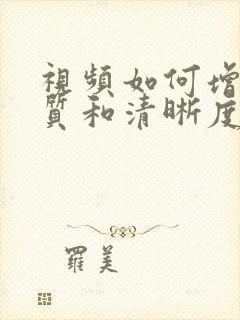 視頻如何增
質和清晰度
羅美